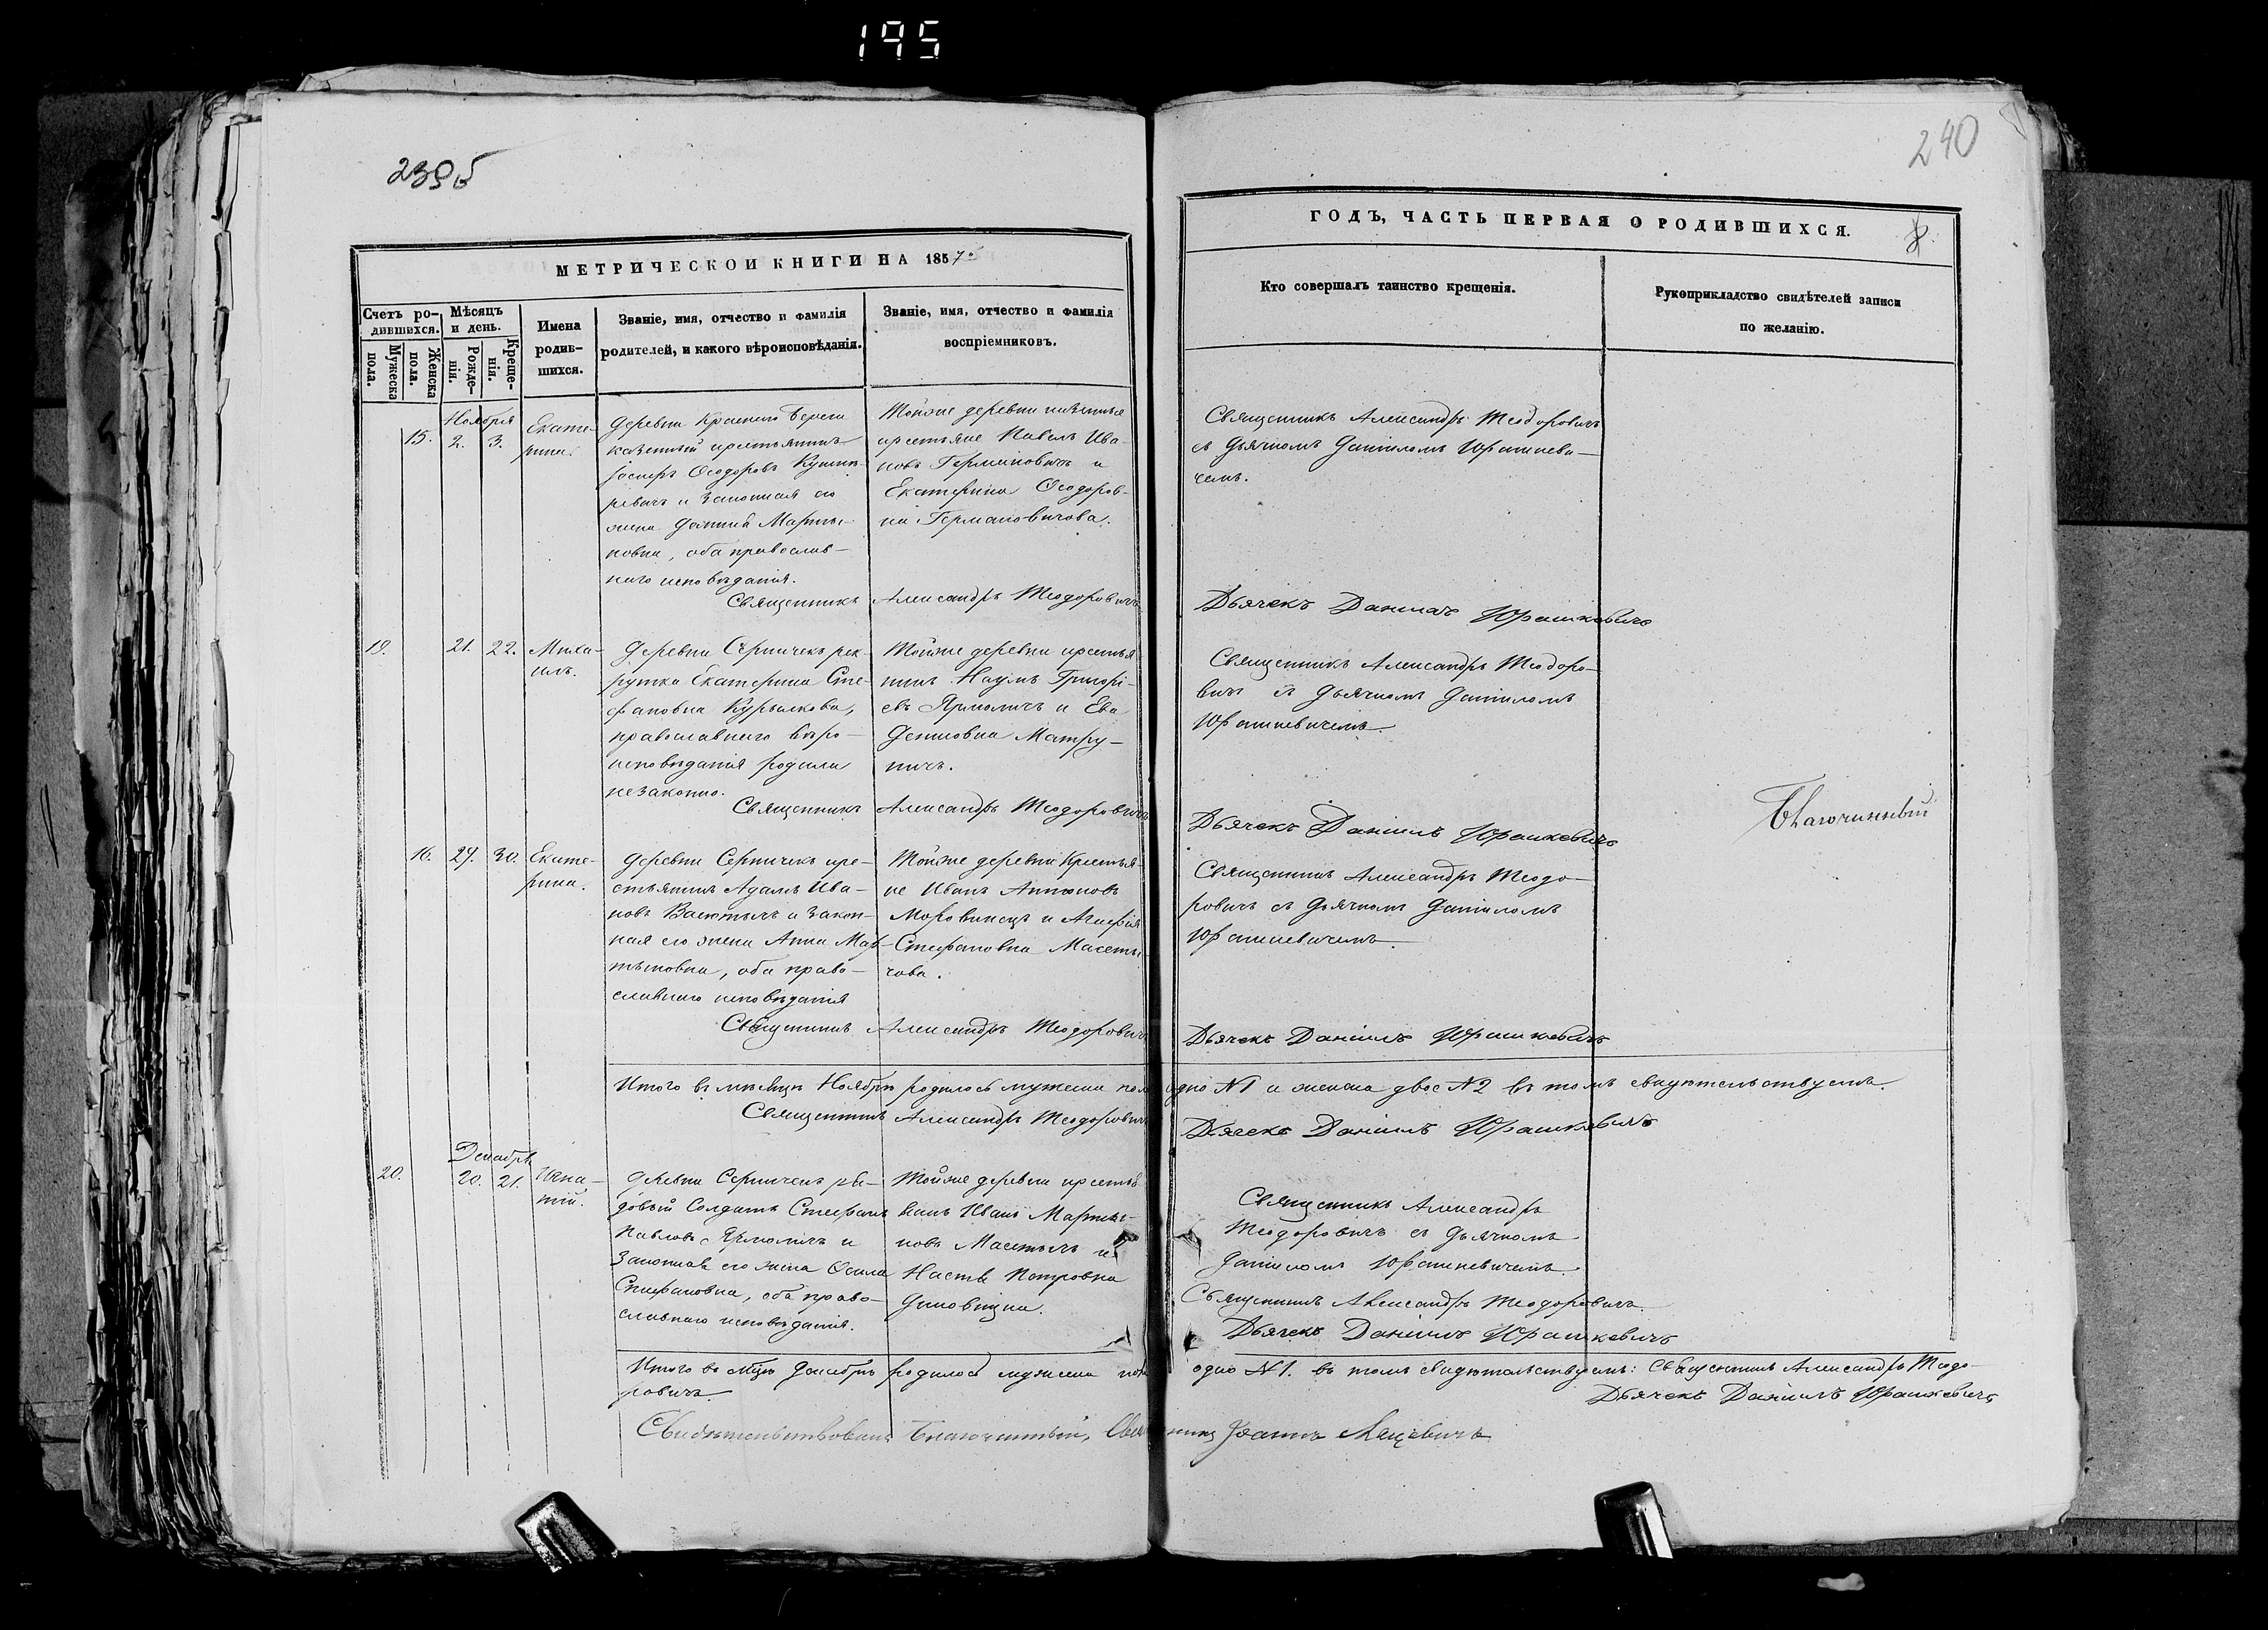 195
239б
240
МЕТРИЧЕСКОЙ КНИГИ НА 1857.
Счетъ ро-
дившихся.
Мужеска
пола.
Женска
пола.
Мѣсяцъ
и день.
Рожде-
нія.
Креще-
нія.
Имена
родив-
шихся.
Званіе, имя, отчество и фамилія
родителей, и какого вѣроисповѣданія.
Званіе, имя, отчество и фамилія
воспріемниковъ.
ГОДЪ, ЧАСТЬ ПЕРВАЯ О РОДИВШИХСЯ.
Кто совершалъ таинство крещенія.
Рукоприкладство свидѣтелей записи
по желанію.
Ноября
15. 2. 3.
Екате-
рина.
Деревни Краснего Берега
казенный крестьянинъ
Іосифъ Ѳеодоровъ
и законная его
жена Марты-
новна, оба православ-
наго исповѣданія.
Тойже деревни казенные
крестьяне Павелъ Ива-
новъ Германовичъ и
Екатерина Ѳеодоров-
на Германовичова.
Священникъ Александръ Теодоровичъ
Священникъ Александръ Теодоровичъ
съ дьячкомъ Даніиломъ Юрашкеви-
чемъ.
Дьячекъ Даніилъ Юрашкевичъ
19. 21. 22.
Миха-
илъ.
Деревни Серничекъ рек-
рутка Екатерина Сте-
фановна
православнаго вѣро-
исповѣданія родила
незаконно.
Тойже деревни крестья-
нинъ Наумъ Григорі-
евъ Ярмоличъ и Ева
Денисовна Матру-
ничъ.
Священникъ Александръ Теодоровичъ
Священникъ Александръ Теодоро-
вичъ съ дьячкомъ Даніиломъ
Юрашкевичемъ.
Дьячекъ Даніилъ Юрашкевичъ
Благочинный
16. 29. 30.
Екате-
рина.
Деревни Серничекъ кре-
стьянинъ Адамъ Ива-
новъ и закон-
ная его жена Анна Мар-
тыновна, оба право-
славнаго исповѣданія
Тойже деревни крестья-
не Иванъ Антоновъ
и
Стефановна Масты-
чова.
Священникъ Александръ Теодоровичъ
Священникъ Александръ Теодо-
ровичъ съ дьячкомъ Даніиломъ
Юрашкевичемъ.
Дьячекъ Даніилъ Юрашкевичъ
Итого въ мѣсяцѣ Ноябрѣ родилось мужеска пола одно N1 и женска двое N2 въ томъ свидѣтельствуемъ.
Священникъ Александръ Теодоровичъ
Дьячекъ Даніилъ Юрашкевичъ
Декабря
20. 20. 21.
Игна-
тій.
Деревни Серничекъ ря-
довый Солдатъ Стефанъ
Павловъ Ярмоличъ и
законная его жена
Стефановна, оба право-
славнаго исповѣданія.
Тойже деревни
Иванъ Марты-
новъ Мастычъ и
Настя Петровна
Священникъ Александръ
Теодоровичъ съ дьячкомъ
Даніиломъ Юрашкевичемъ.
Священникъ Александръ Теодоровичъ.
Дьячекъ Даніилъ Юрашкевичъ
Итого въ мцѣ Декабрѣ родилось мужеска пола одно N1. въ томъ свидѣтельствуемъ: Священникъ Александръ Теодо-
ровичъ
Дьячекъ Даніилъ Юрашкевичъ
Свидѣтельствовалъ Благочинный, Священникъ Іоаннъ